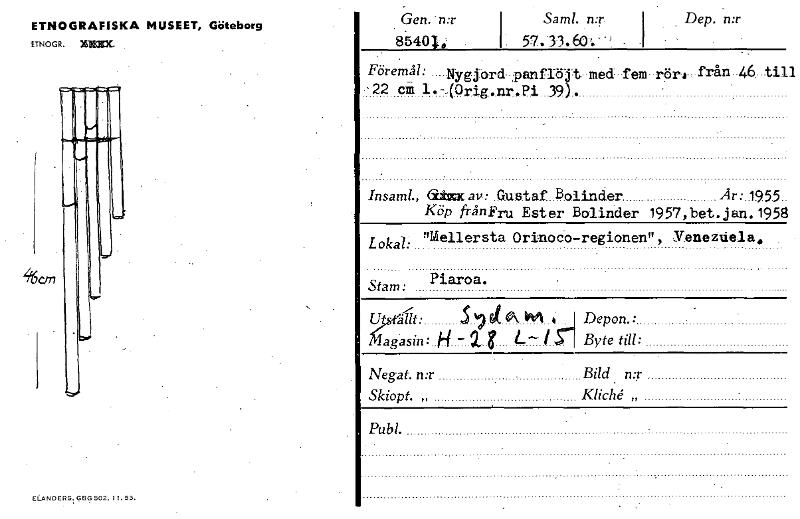 ETNOGRAFISKA MUSEET, Göteborg
ETNOGR.
46cm
ELANDERS, GBG 502. 11. 53.
Gen. n:r Saml. n:r Dep. n:r
85401. 57.33.60.
Föremål: Nygjord panflöjt med fem rör. från 46 till
22 cm l. (Orig.nr.Pi 39).
Insaml., av: Gustaf Bolinder År: 1955
Köp från Fru Ester Bolinder 1957,bet.jan. 1958
Lokal: "Mellersta Orinoco-regionen", Venezuela.
Stam: Piaroa.
Utställt: Sydam. Depon.:
Magasin: H-28 L-15 Byte till:
Negat. n:r Bild n:r
Skiopt. „ Kliché „
Publ.